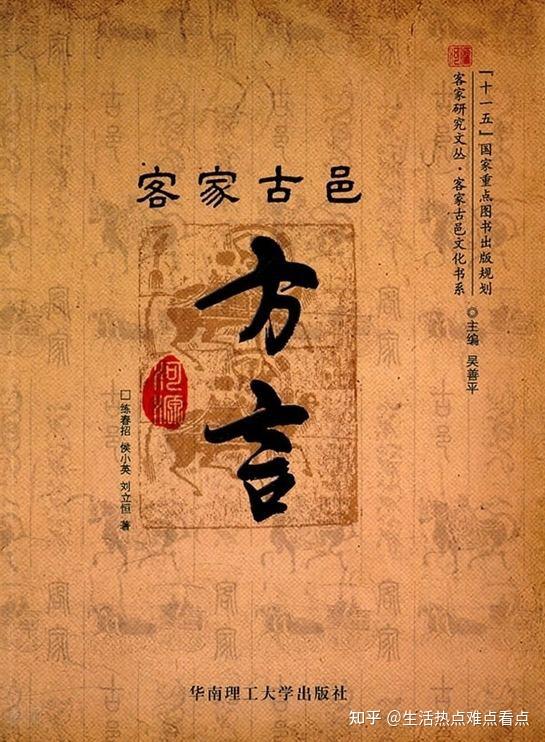 「十一五」国家重点图书出版规划
客家研究文丛·客家古邑文化书系
◎主编 吴善平
客家古邑
方言
河源
□练春招 侯小英 刘立恒 著
华南理工大学出版社
知乎 @生活热点难点看点